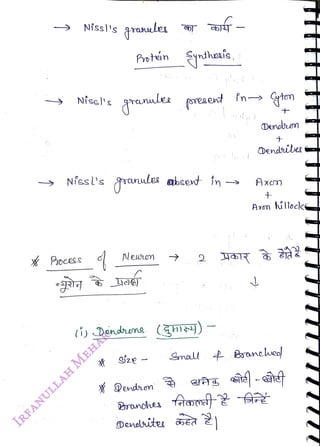 → Nissl's granules का कार्य -
Protein Synthesis.
→ Nissl's granules present in → Cyton
+
Dendron
+
Dendrites
→ Nissl's granules absent in → Axon
+
Axon hillock
* Process of Neuron → 2 प्रकार के होते है
न्यूरोन के प्रवर्ध ↓
(i) Dendrons (दुमाश्य) -
* Size - Small & Branched
* Dendron से अनेक छोटी-छोटी
Branches निकलती है जिन्हें
Dendrites कहते है|
IRFANULLAH MEHA